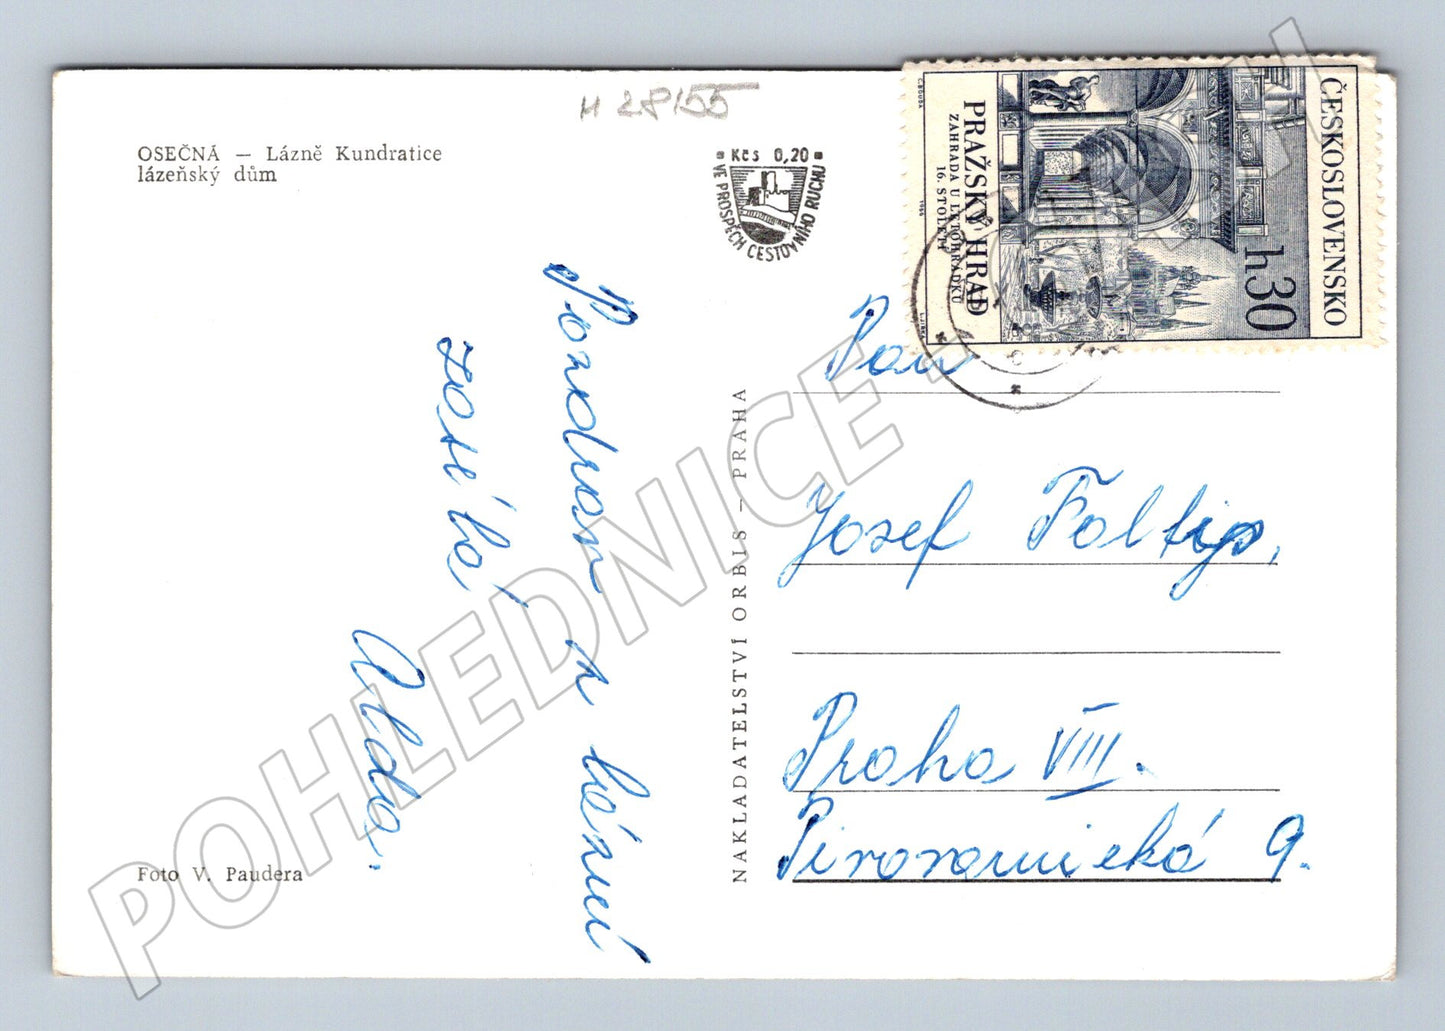 H 28155
OSEČNÁ — Lázně Kundratice
lázeňský dům
Kčs 0,20
VE PROSPĚCH CESTOVNÍHO RUCHU
ČESKOSLOVENSKO
30 h
PRAŽSKÝ HRAD
ZAHRADA U LETOHRÁDKU
16. STOLETÍ
1966
Pozdrav z lázní
zasílá
Foto V. Paudera
NAKLADATELSTVÍ ORBIS — PRAHA
Pan
Josef
Praha VIII.
Pivovarnická 9.
POHLEDNICE